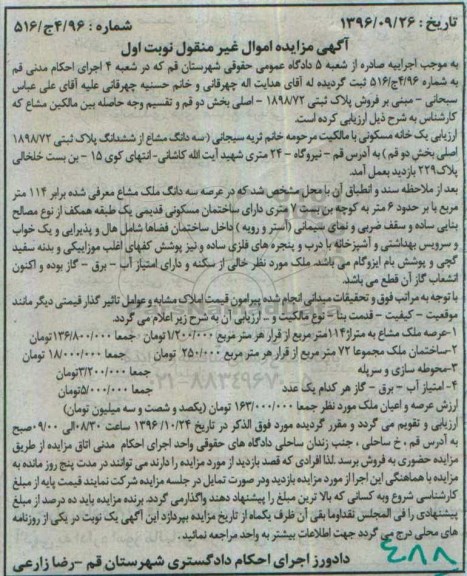 تاریخ : ۱۳۹۶/۰۹/۲۶ شماره : ۴/۹۶ج/۵۱۶
آگهی مزایده اموال غیر منقول نوبت اول
به موجب اجراییه صادره از شعبه ۵ دادگاه عمومی حقوقی شهرستان قم که در شعبه ۴ اجرای احکام مدنی قم
به شماره ۴/۹۶ج/۵۱۶ ثبت گردیده له آقای هدایت اله چهرقانی و خانم حسنیه چهرقانی علیه آقای علی عباس
سبحانی - مبنی بر فروش پلاک ثبتی ۱۸۹۸/۷۲ - اصلی بخش دو قم و تقسیم وجه حاصله بین مالکین مشاع که
کارشناس به شرح ذیل ارزیابی کرده است.
ارزیابی یک خانه مسکونی با مالکیت مرحومه خانم ثریه سبحانی (سه دانگ مشاع از ششدانگ پلاک ثبتی ۱۸۹۸/۷۲
اصلی بخش دو قم ) به آدرس قم - نیروگاه - ۲۴ متری شهید آیت الله کاشانی- انتهای کوی ۱۵ - بن بست خلخالی
پلاک ۲۲۹ بازدید بعمل آمد.
بعد از ملاحظه سند و انطباق آن با محل مشخص شد که در عرصه سه دانگ ملک مشاع معرفی شده برابر ۱۱۴ متر
مربع با بر حدود ۶ متر به کوچه بن بست ۶ متری دارای ساختمان مسکونی قدیمی یک طبقه همکف از نوع مصالح
بنایی ساده و سقف ضربی و نمای سیمانی (آستر و رویه ) داخل ساختمان فضاها شامل هال و پذیرایی و یک خواب
و سرویس بهداشتی و آشپزخانه با درب و پنجره های فلزی ساده و نیز پوشش کفهای اغلب موزاییکی و بدنه سفید
گچی و پوشش بام ایزوگام می باشد. ملک مورد نظر خالی از سکنه و دارای امتیاز آب - برق - گاز بوده و اکنون
انشعاب گاز آن قطع می باشد.
با توجه به مراتب فوق و تحقیقات میدانی انجام شده پیرامون قیمت املاک مشابه و عوامل تاثیر گذار قیمتی دیگر مانند
موقعیت - کیفیت - قدمت بنا - نوع مالکیت و .. ارزیابی آن به شرح زیر اعلام می گردد.
۱-عرصه ملک مشاع به متراژ۱۱۴متر مربع از قرار هر متر مربع ۱/۲۰۰/۰۰۰تومان جمعا ۱۳۶/۸۰۰/۰۰۰تومان
۲-ساختمان ملک مجموعا ۷۲ متر مربع از قرار هر متر مربع ۲۵۰/۰۰۰ تومان جمعا ۱۸/۰۰۰/۰۰۰ تومان
۳-محوطه سازی و سرپله جمعا ۳/۲۰۰/۰۰۰تومان
۴- امتیاز آب - برق - گاز هر کدام یک عدد جمعا ۵/۰۰۰/۰۰۰تومان
ارزش عرصه و اعیان ملک مورد نظر جمعا ۱۶۳/۰۰۰/۰۰۰ تومان (یکصد و شصت و سه میلیون تومان)
ارزیابی و تقویم می گردد و مقرر گردیده مورد فوق الذکر در تاریخ ۱۳۹۶/۱۰/۲۴ ساعت ۰۸/۳۰ الی ۰۹/۰۰ صبح
به آدرس قم . خ ساحلی ، جنب زندان ساحلی دادگاه های حقوقی واحد اجرای احکام مدنی اتاق مزایده از طریق
مزایده حضوری به فروش برسد .لذا افرادی که قصد بازدید از مورد مزایده را دارند می توانند در مدت پنج روز مانده به
مزایده با هماهنگی این اجرا از مورد مزایده بازدید ودر صورت تمایل در جلسه مزایده شرکت نمایند قیمت پایه از مبلغ
کارشناسی شروع وبه کسانی که بالا ترین مبلغ را پیشنهاد دهند واگذارمی گردد. برنده مزایده باید ده درصد از مبلغ
پیشنهادی را فی المجلس نقداوما بقی آن ظرف یکماه از تاریخ مزایده بپردازد این آگهی یک نوبت در یکی از روزنامه
های محلی درج می گردد جهت اطلاعات بیشتر به واحد مراجعه نمائید.
۴۸۸
دادورز اجرای احکام دادگستری شهرستان قم -رضا زارعی